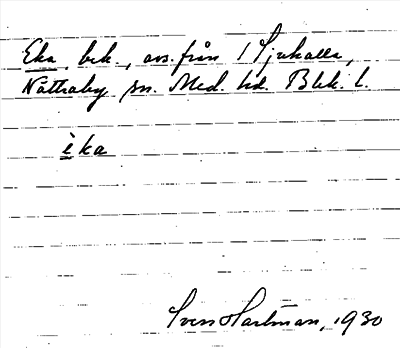 Eka, bek., avs. från 1 Sjukalla,
Nättraby sn. Med. hd. Blek. l.
èka
Sven Hartman, 1930